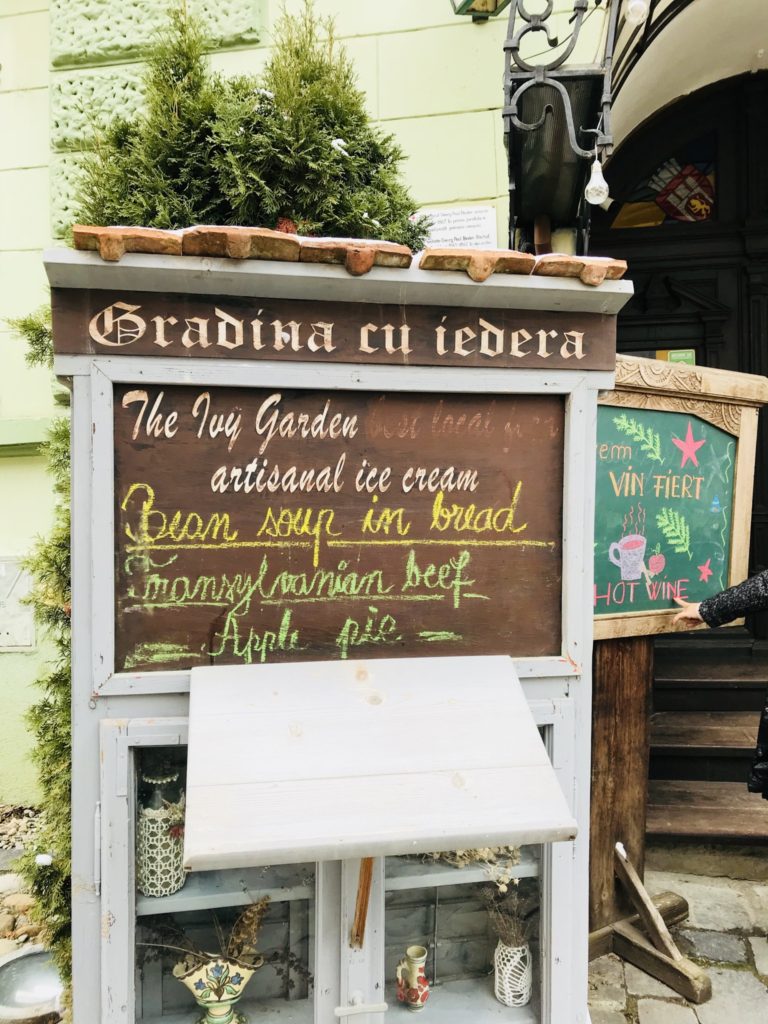 Gradina cu iedera
The Ivy Garden
artisanal ice cream
Bean soup in bread
Transylvanian beef
Apple pie
VIN FIERT
HOT WINE